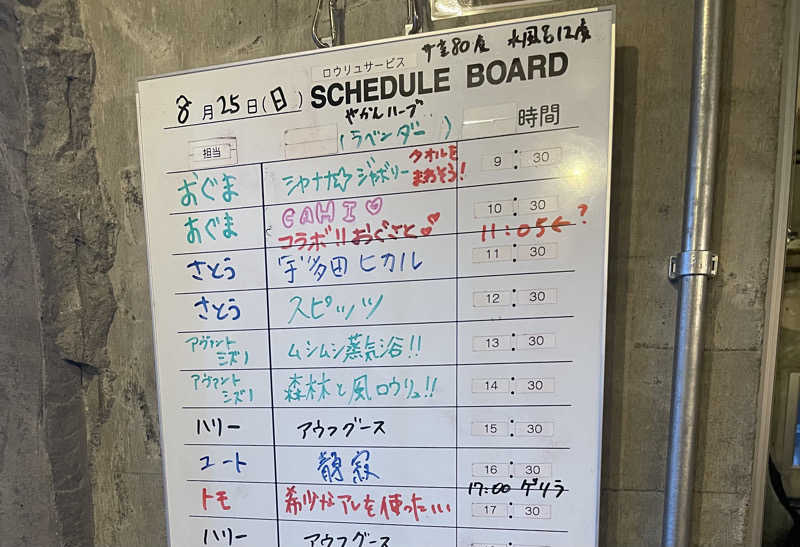 サ室80度 水風呂12度
ロウリュサービス
SCHEDULE BOARD
8月25日(日)
やかんハーブ
(ラベンダー)
担当 時間
おぐま シャナナ☆ジャボリー タオルをまわそう! 9:30
おぐま CAHI♡ 10:30
コラボ!!おぐさと 11:05←?
さとう 宇多田ヒカル 11:30
さとう スピッツ 12:30
アヴァントミズノ ムシムシ蒸気浴!! 13:30
アヴァントミズノ 森林と風ロウリュ!! 14:30
ハリー アウフグース 15:30
ユート 静寂 16:30
17:00 ゲリラ
トモ 希少なアレを使ったい 17:30
ハリー アウフグース